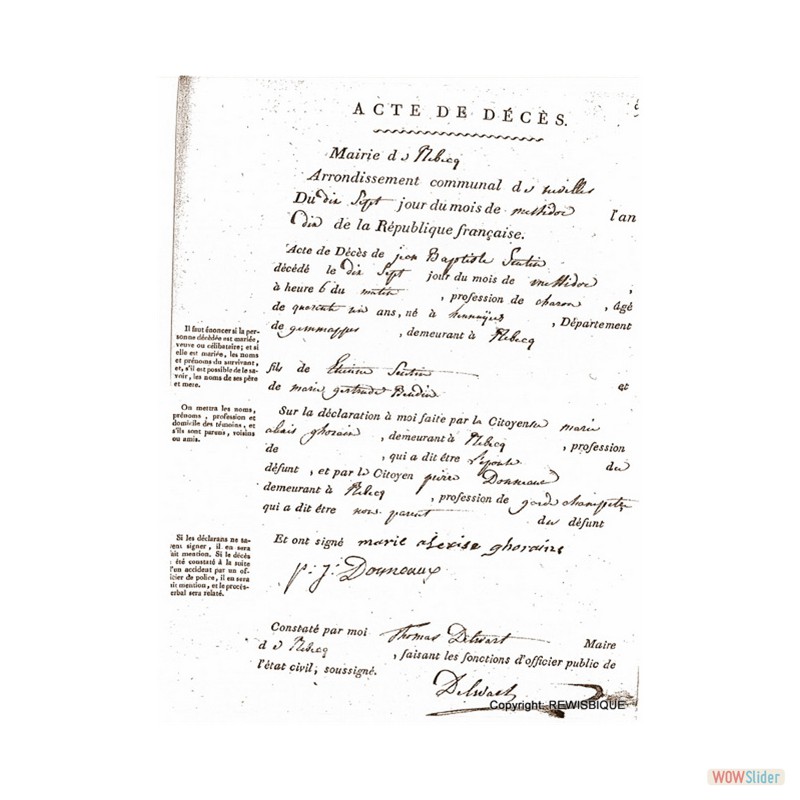 ACTE DE DÉCÈS.
Mairie de Rebecq
Arrondissement communal de nivelles
Du dix Sept jour du mois de messidor l'an
dix de la République française.
Acte de Décès de jean Baptiste
décédé le dix Sept jour du mois de messidor,
à heure 6 du matin, profession de charon, âgé
de quarente un ans, né à hennuÿeres, Département
de gemmappes, demeurant à Rebecq
Il faut énoncer si la per-
sonne décédée est mariée,
veuve ou célibataire; et si
elle est mariée, les noms
et prénoms du survivant,
et, s'il est possible de le sa-
voir, les noms de ses père
et mere.
fils de Etienne et
de marie gertrude Baudin
On mettra les noms,
prénoms, profession et
domicile des témoins, et
s'ils sont parens, voisins
ou amis.
Sur la déclaration à moi faite par la Citoyenne marie
ghorain, demeurant à Rebecq, profession
de , qui a dit être l'epouse du
défunt, et par le Citoyen pierre Donneaux
demeurant à Rebecq, profession de gard champetre
qui a dit être non parent du défunt
Si les déclarans ne sa-
vent signer, il en sera
fait mention. Si le décès
a été constaté à la suite
d'un accident par un of-
ficier de police, il en sera
fait mention, et le procès-
verbal sera relaté.
Et ont signé marie alexise ghorains
p: j: Donneaux
Constaté par moi Thomas Delwart Maire
de Rebecq, faisant les fonctions d'officier public de
l'état civil, soussigné.
Delwart
Copyright: REWISBIQUE
WOWSlider